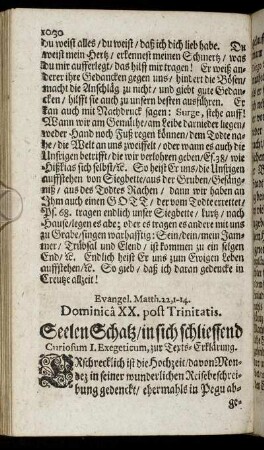 1030
du weist alles / du weist / daß ich dich lieb habe. Du
weist mein Hertz / erkennest meinen Schmertz / was
Du mir aufferlegt / das hilff mir tragen! Er weiß an-
derer ihre Gedancken gegen uns / hindert die Bösen/
macht die Anschläg zu nicht / und giebt gute Gedan-
cken / hilfft sie auch zu unsern besten ausführen. Er
kan auch mit Nachdruck sagen: Surge, stehe auff!
Wann wir am Gemüthe/ am Leibe darnieder liegen/
weder Hand noch Fuß regen können/ dem Todte na-
he/ die Welt an uns zweiffelt / oder wann es auch die
Unsrigen betrifft/ die wir verlohren geben/ Es. 38/ wie
Hißkias sich selbst/ &c. So heist Er uns/ die Unsrigen
auffstehen von Siegbette/ aus der Gruben/ Gefäng-
nüß/ aus des Todtes Rachen / dann wir haben an
Ihm auch einen GOTT / der vom Todte errettet/
Ps. 68. tragen endlich unser Siegbette / kurtz / nach
Hause/ legen es ab; oder es tragen es andere mit uns
zu Grabe/ singen warhafftig: Sein/ dein/ mein Jam-
mer / Trübsal und Elend / ist kommen zu ein selgen
End/ &c. Endlich heist Er uns zum Ewigen Leben
auffstehen/ &c. So gieb / daß ich daran gedencke in
Creutze allzeit!
Evangel. Matth. 22, 1-14.
Dominicâ XX. post Trinitatis.
Seelen Schatz/ in sich schliessend
Curiosum I. Exegeticum, zur Texts-Erklärung.
ERschrecklich ist die Hochzeit/ davon Mon-
dez in seiner wunderlichen Reisebeschrei-
bung gedenckt/ ehermahls in Pegu ab-
ge-